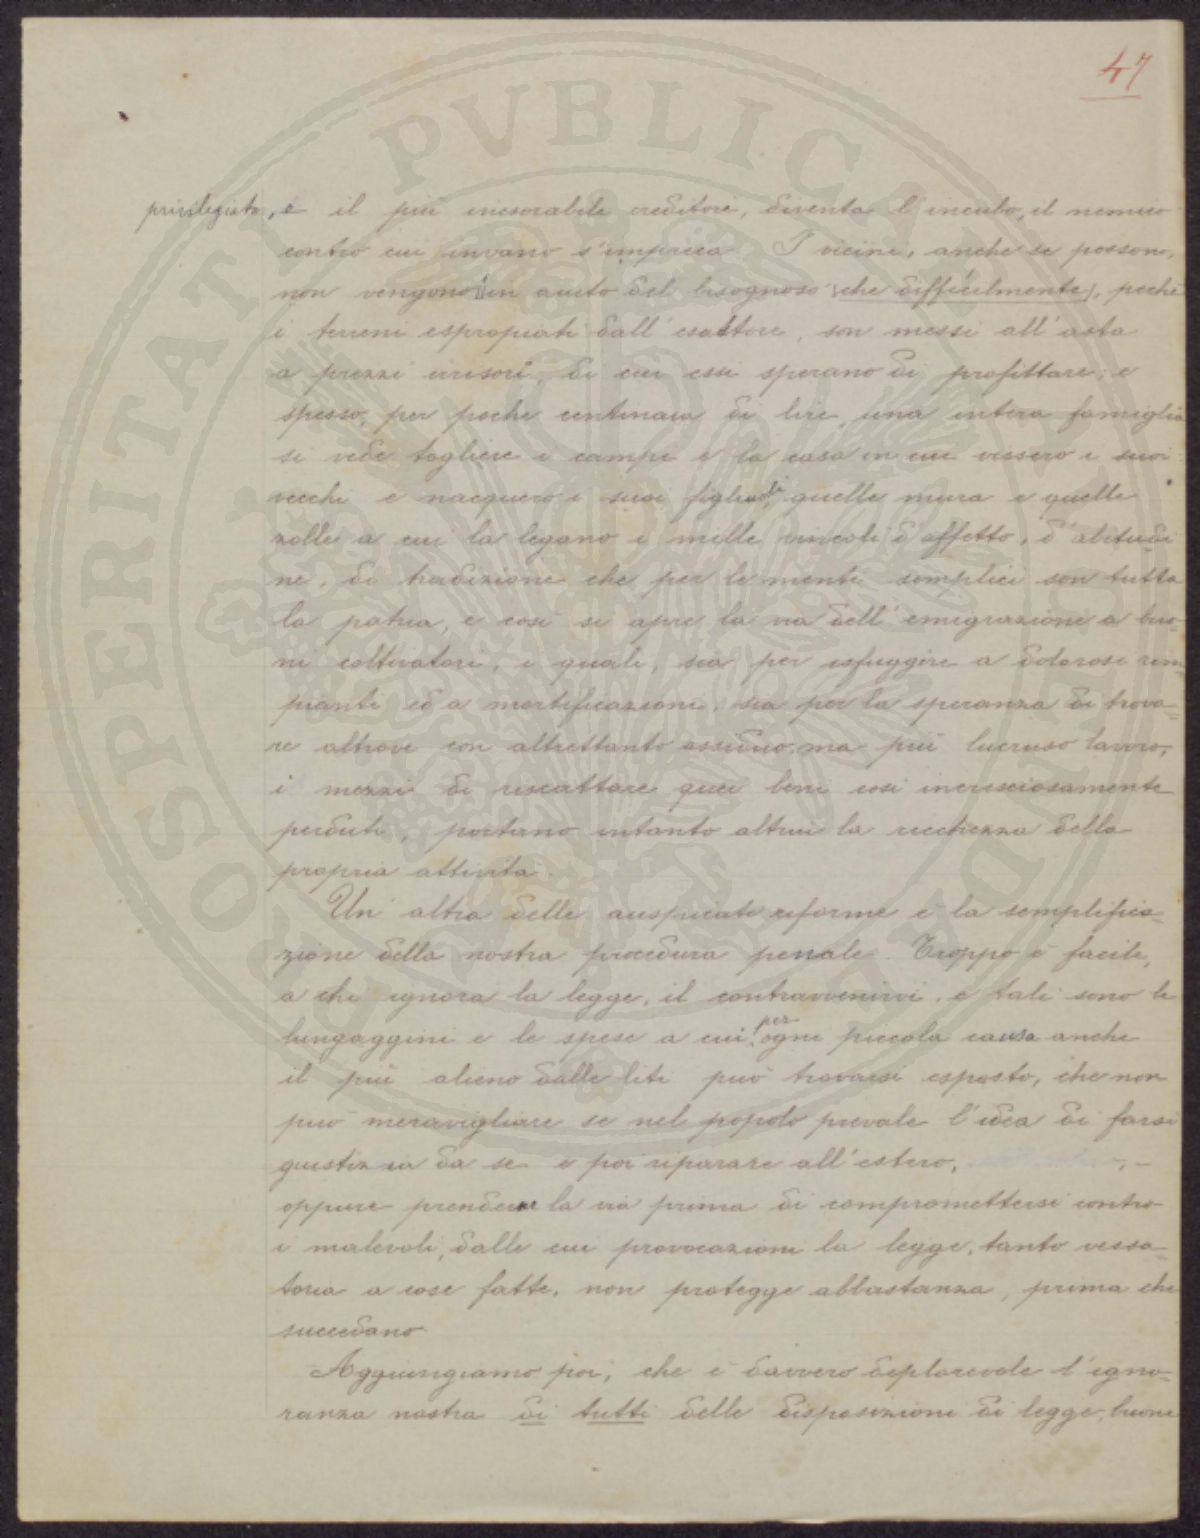 47
privilegiato, è il più inesorabile creditore, diventa l'incubo, il nemico
contro cui invano s'impreca. I vicini, anche se possono,
non vengono in aiuto del bisognoso (che difficilmente), poichè
i terreni espropriati dall'esattore, son messi all'asta
a prezzi irrisori, di cui essi sperano di profittare; e
spesso, per poche centinaia di lire, una intera famiglia
si vede togliere i campi e la casa in cui vissero i suoi
vecchi e nacquero i suoi figliuoli, quelle mura e quelle
zolle a cui la legano i mille vincoli d'affetto, d'abitudi
ne, di tradizione che per le menti semplici son tutta
la patria, e così si apre la via dell'emigrazione a buo-
ni coltivatori, i quali, sia per isfuggire a dolorosi rim
pianti ed a mortificazioni, sia per la speranza di trova-
re altrove con altrettanto assiduo, ma più lucroso lavoro,
i mezzi di riscattare quei beni così incresciosamente
perduti, portano intanto altrui la ricchezza della
propria attività.
Un'altra delle auspicate riforme è la semplifica=
zione della nostra procedura penale. Troppo è facile,
a chi ignora la legge, il contravvenirvi, e tali sono le
lungaggini e le spese a cui per ogni piccola causa anche
il più alieno dalle liti può trovarsi esposto, che non
può meravigliare se nel popolo prevale l'idea di farsi
giustizia da se e poi riparare all'estero,
oppure prendere la via prima di compromettersi contro
i malevoli, dalle cui provocazioni la legge, tanto vessa=
toria a cose fatte, non protegge abbastanza, prima che
succedano.
Aggiungiamo poi, che è davvero deplorevole l'igno=
ranza nostra di tutti delle disposizioni di legge, buone
PUBLICAE
PROSPERITATI